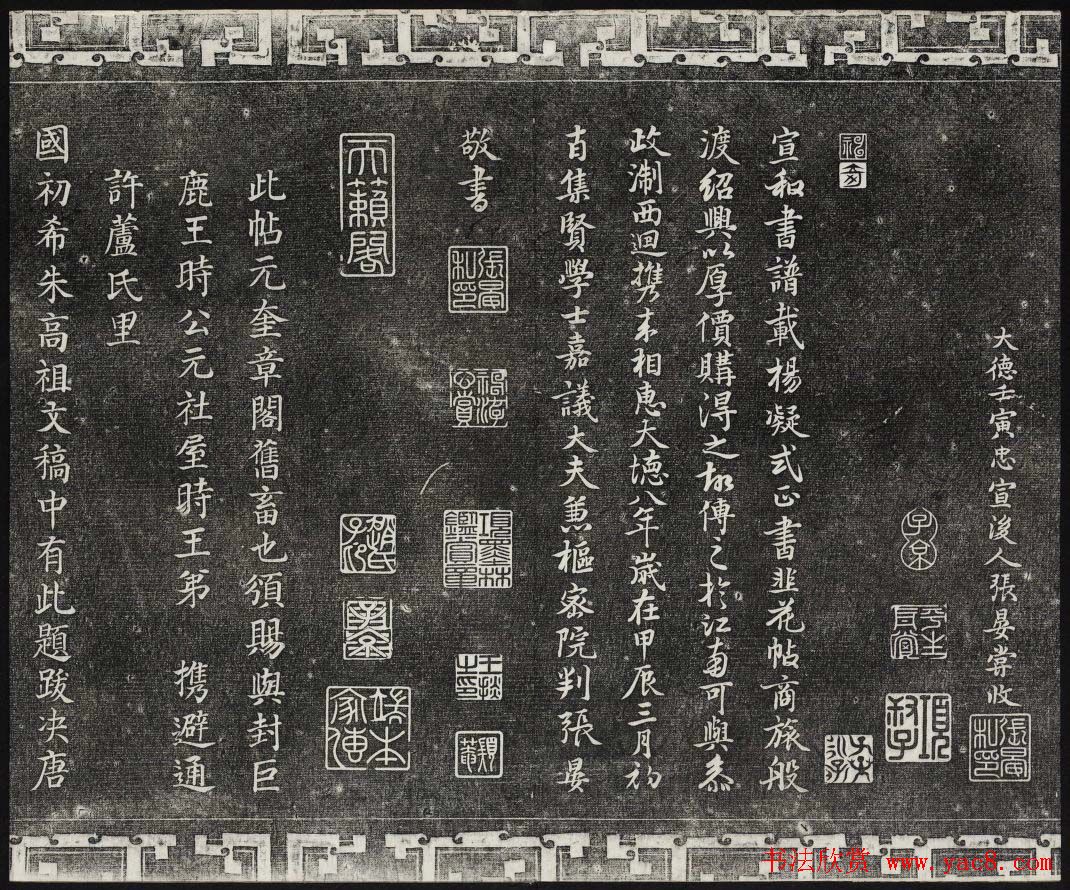 大德壬寅忠宣後人張晏嘗收
張晏私印
子京
平生真賞
神奇
宣和書譜載楊凝式正書韭花帖商旅般
渡紹興以厚價購得之故傳之於江南可與叅
政淛西迴携来相惠大德八年歲在甲辰三月初
吉集賢學士嘉議大夫兼樞密院判張晏
敬書
張晏私印
項墨林鑑賞章
天籟閣
此帖元奎章閣舊畜也頒賜與封巨
鹿王時公元社屋時王弟 携避通
許蘆氏里
國初希朱高祖文稿中有此題跋决唐
书法欣赏 www.yac8.com